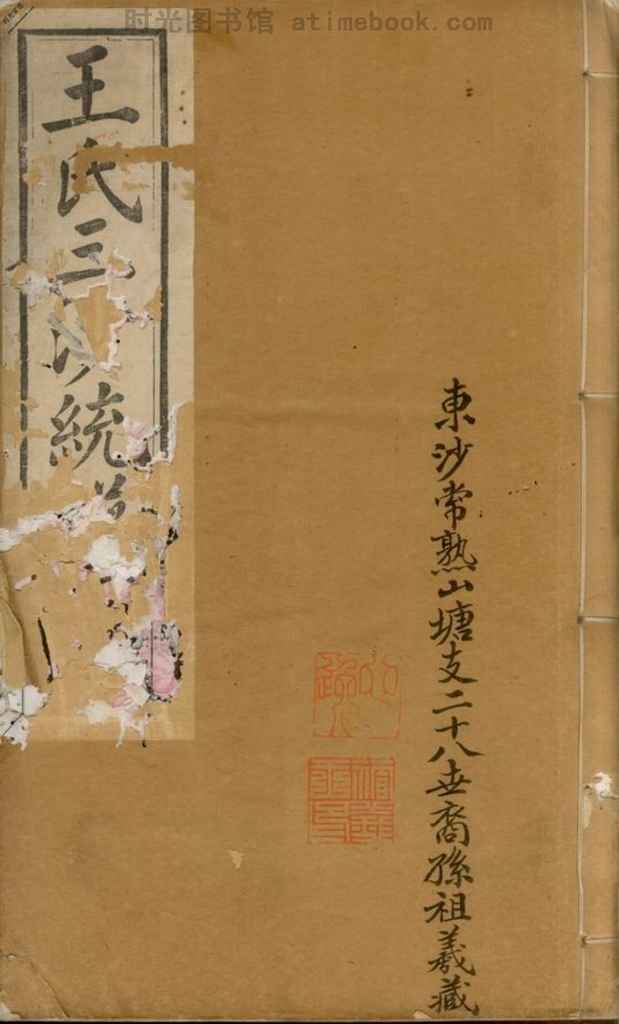 时光图书馆 atimebook.com
王氏三沙統
東沙常熟山塘支二十八世裔孫祖羲藏